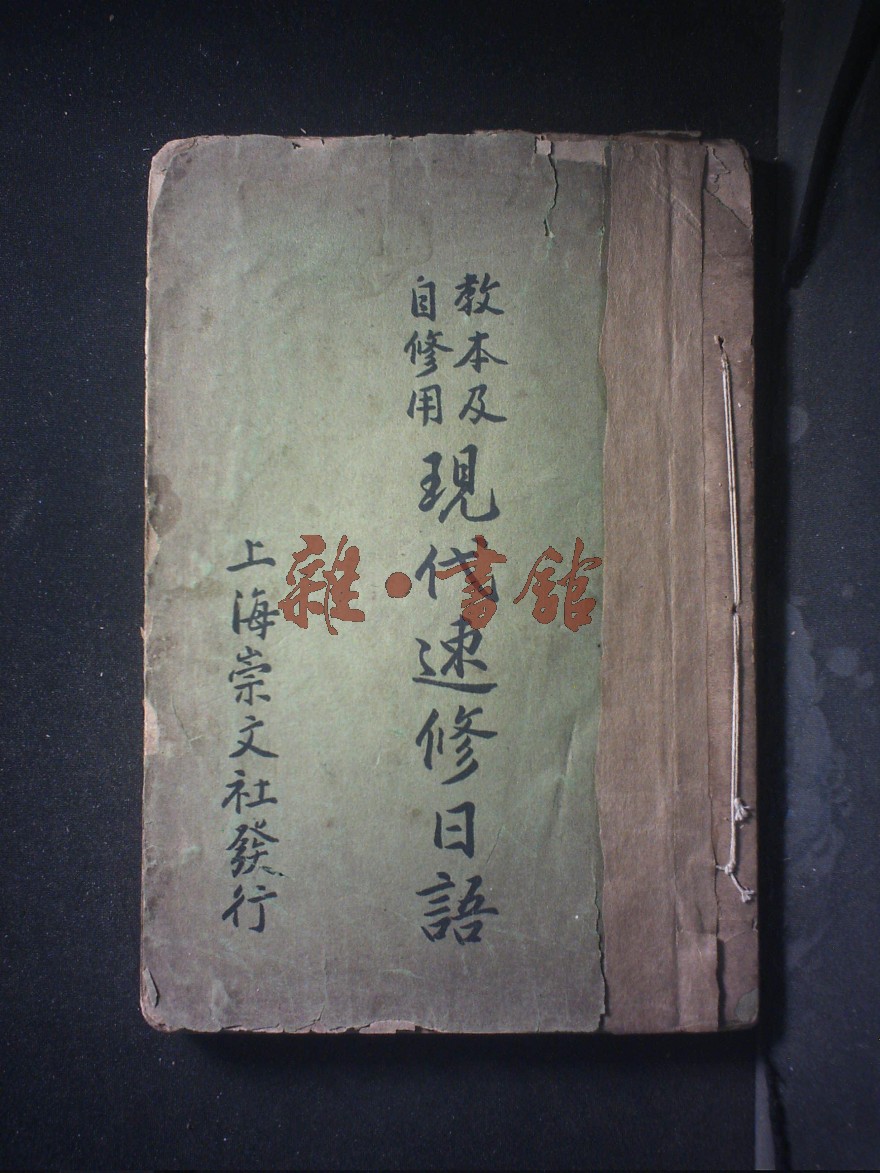 教本及
自修用
現代速修日語
上海崇文社發行
雜·書館